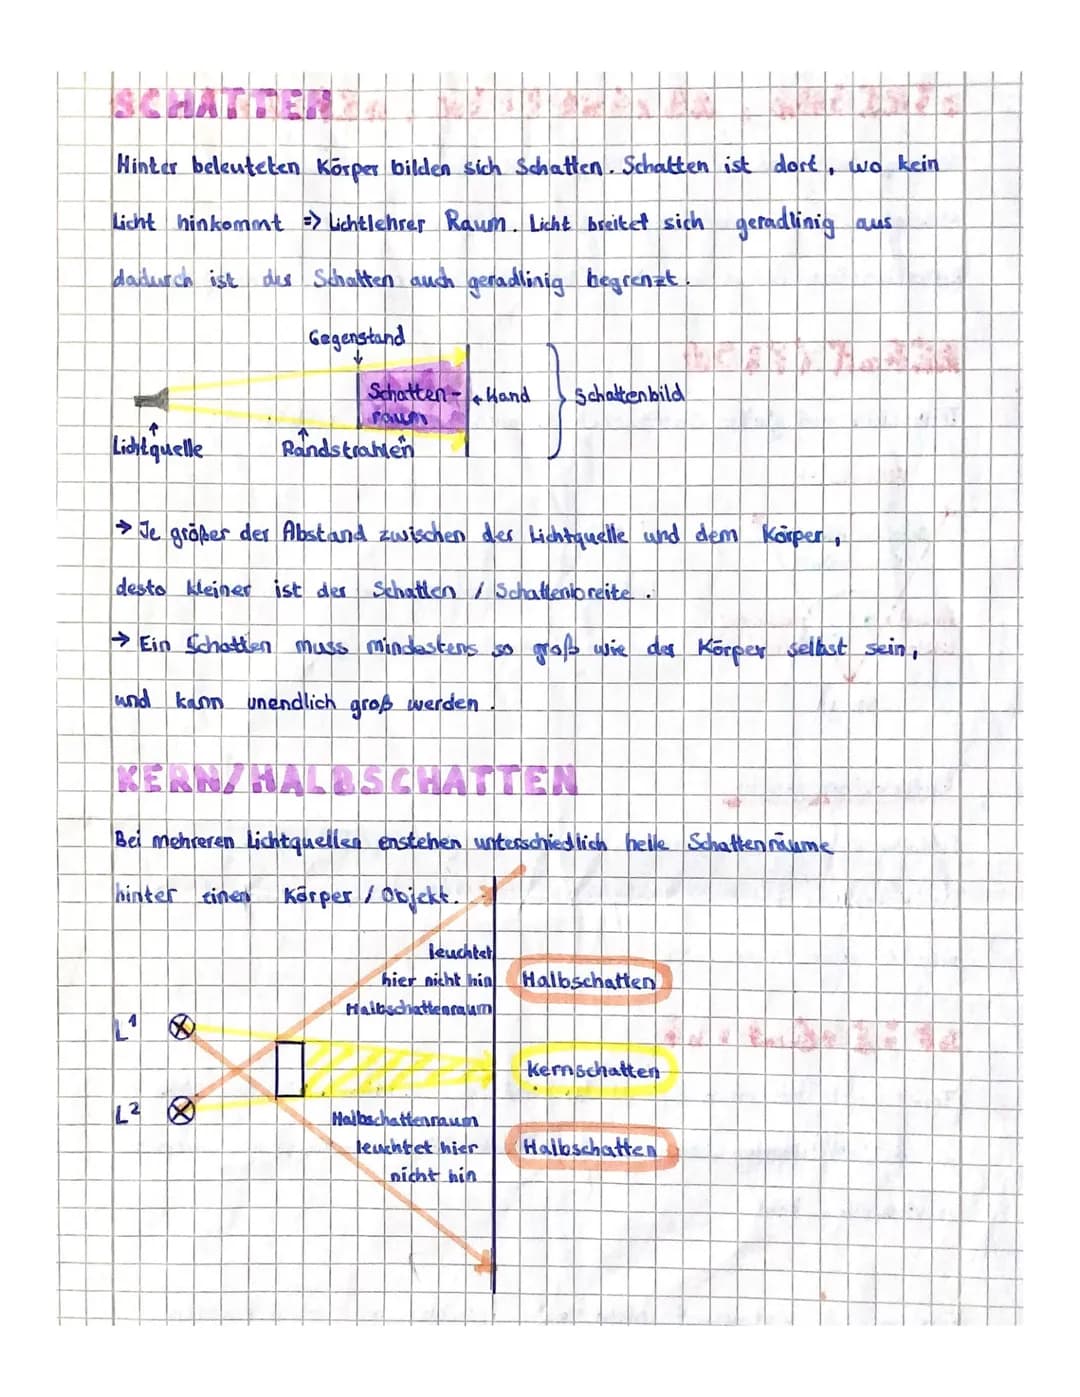 SCHATTEN
Hinter beleuteten Körper bilden sich Schatten. Schatten ist dort, wo kein
Licht hinkommt => Lichtlehrer Raum. Licht breitet sich geradlinig aus
dadurch ist der Schatten auch geradlinig begrenzt.
Gegenstand
Schatten-
raum
Wand
Schattenbild
Lichtquelle
Randstrahlen
→ Je größer der Abstand zwischen der Lichtquelle und dem Körper,
desto kleiner ist der Schatten / Schattenbreite.
→ Ein Schatten muss mindestens so groß wie der Körper selbst sein,
und kann unendlich groß werden.
KERN/HALBSCHATTEN
Bei mehreren Lichtquellen enstehen unterschiedlich helle Schattenräume
hinter einen Körper / Objekt.
leuchtet
hier nicht hin
Halbschattenraum
Halbschatten
L1
Kernschatten
L2
Halbschattenraum
leuchtet hier
nicht hin
Halbschatten